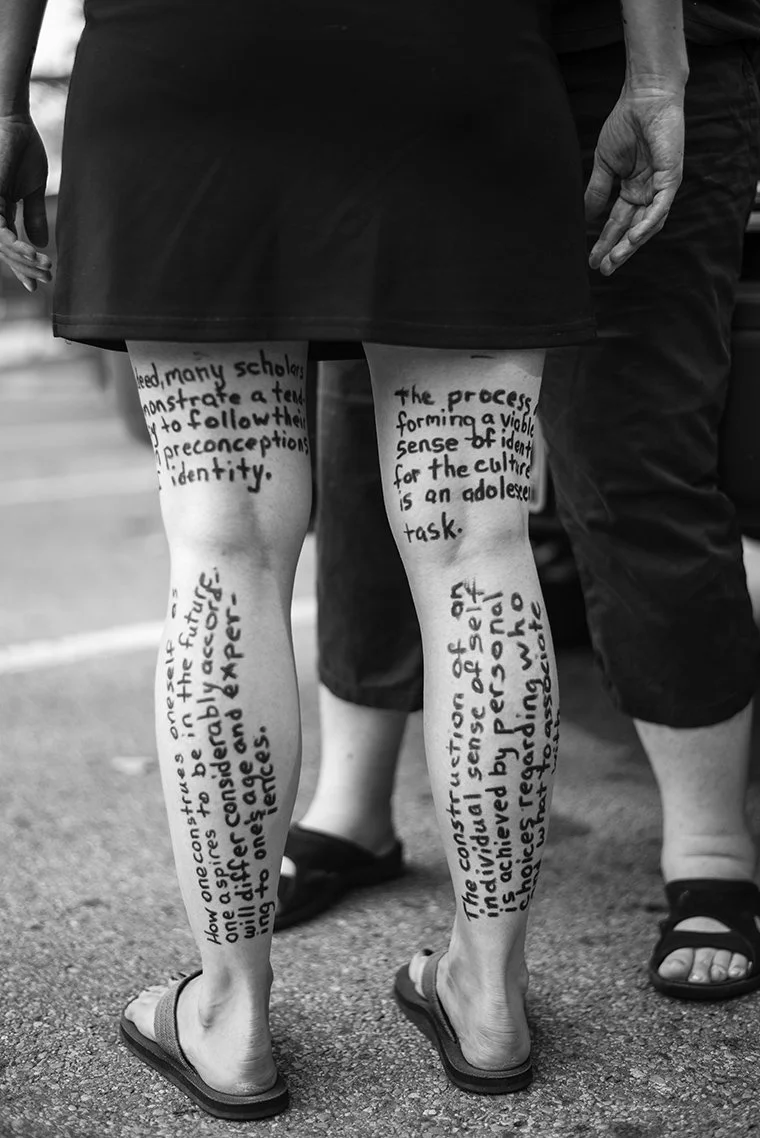 eed, many scholars
monstrate a tend
y to follow their
preconceptions
identity.
The process
forming a viable
sense of ident
for the culture
is an adolescen
task.
How one construes oneself as
one aspires to be in the future,
will differ considerably accord-
ing to one's age and exper-
iences.
The construction of an
individual sense of self
is achieved by personal
choices regarding who
and what to associate
with